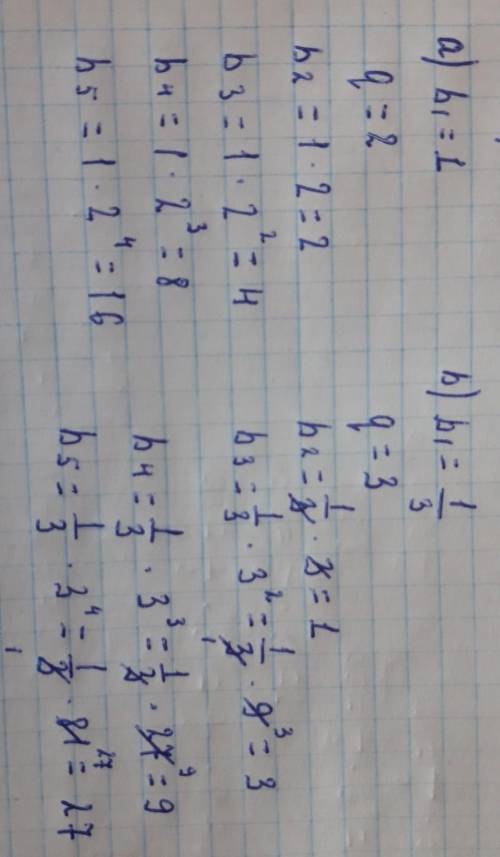 a) b₁ = 1
q = 2
b₂ = 1 · 2 = 2
b₃ = 1 · 2² = 4
b₄ = 1 · 2³ = 8
b₅ = 1 · 2⁴ = 16
b) b₁ = 1/3
q = 3
b₂ = 1/3 · 3 = 1
b₃ = 1/3 · 3² = 1/3 · 9 3 = 3
b₄ = 1/3 · 3³ = 1/3 1 · 27 9 = 9
b₅ = 1/3 · 3⁴ = 1/3 1 · 81 27 = 27